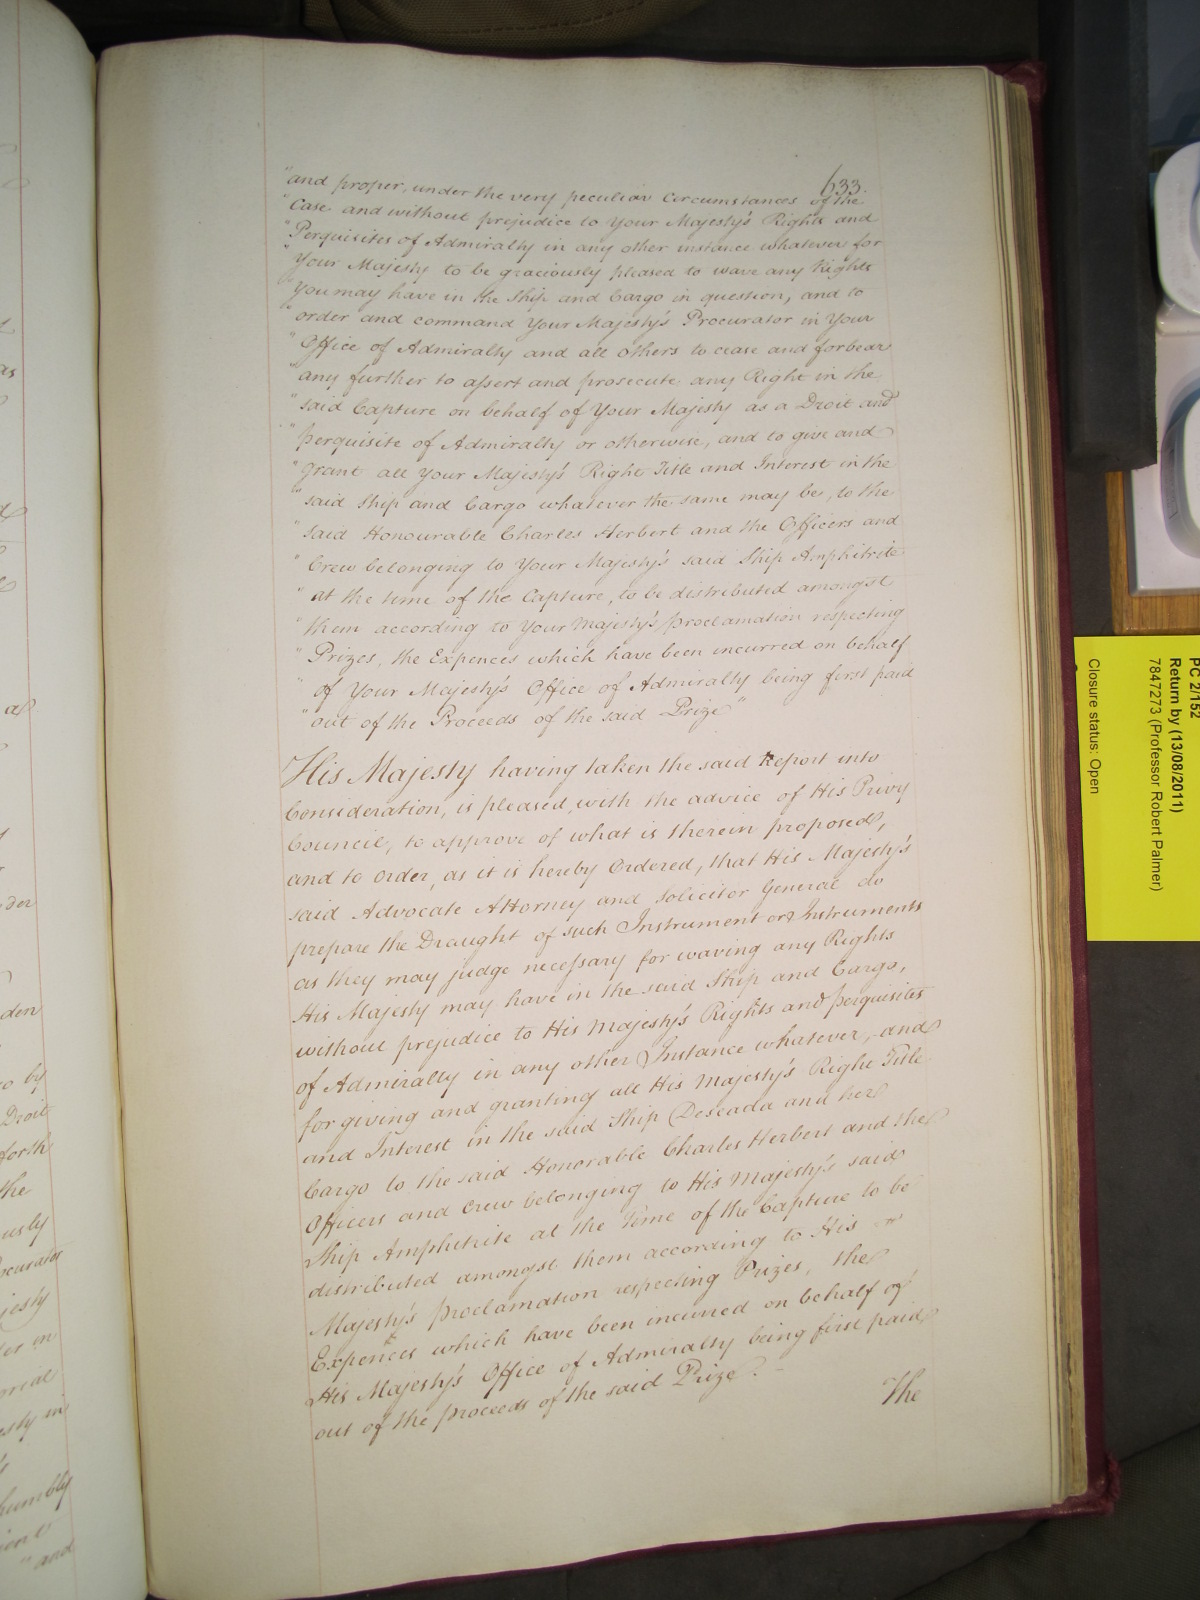 633.
"and proper, under the very peculiar circumstances of the
"Case and without prejudice to Your Majesty's Rights and
"Perquisites of Admiralty in any other instance whatever for
"Your Majesty to be graciously pleased to wave any Rights
"You may have in the Ship and Cargo in question, and to
"order and command Your Majesty's Procurator in Your
"Office of Admiralty and all others to cease and forbear
"any further to assert and prosecute any Right in the
"said Capture on behalf of Your Majesty as a Droit and
"perquisite of Admiralty or otherwise, and to give and
"grant all Your Majesty's Right Title and Interest in the
"said Ship and Cargo whatever the same may be, to the
"said Honourable Charles Herbert and the Officers and
"Crew belonging to Your Majesty's said Ship Amphitrite
"at the time of the Capture, to be distributed amongst
"them according to Your Majesty's proclamation respecting
"Prizes, the Expences which have been incurred on behalf
"of Your Majesty's Office of Admiralty being first paid
"out of the Proceeds of the said Prize"
His Majesty having taken the said Report into
Consideration, is pleased, with the advice of His Privy
Council, to approve of what is therein proposed,
and to order, as it is hereby Ordered, that His Majesty's
said Advocate Attorney and Solicitor General do
prepare the Draught of such Instrument or Instruments
as they may judge necessary for waving any Rights
His Majesty may have in the said Ship and Cargo,
without prejudice to His Majesty's Rights and perquisites
of Admiralty in any other Instance whatever, and
for giving and granting all His Majesty's Right Title
and Interest in the said Ship Deseada and her
Cargo to the said Honorable Charles Herbert and the
Officers and Crew belonging to His Majesty's said
Ship Amphitrite at the Time of the Capture to be
distributed amongst them according to His
Majesty's proclamation respecting Prizes, the
Expences which have been incurred on behalf of
His Majesty's Office of Admiralty being first paid
out of the proceeds of the said Prize.
The
as
der
den
to by
Droit
forth
the
usly
ocurator
jesty
er in
humbly
" and
PC 2/152
Return by (13/08/2011)
7847273 (Professor Robert Palmer)
Closure status: Open